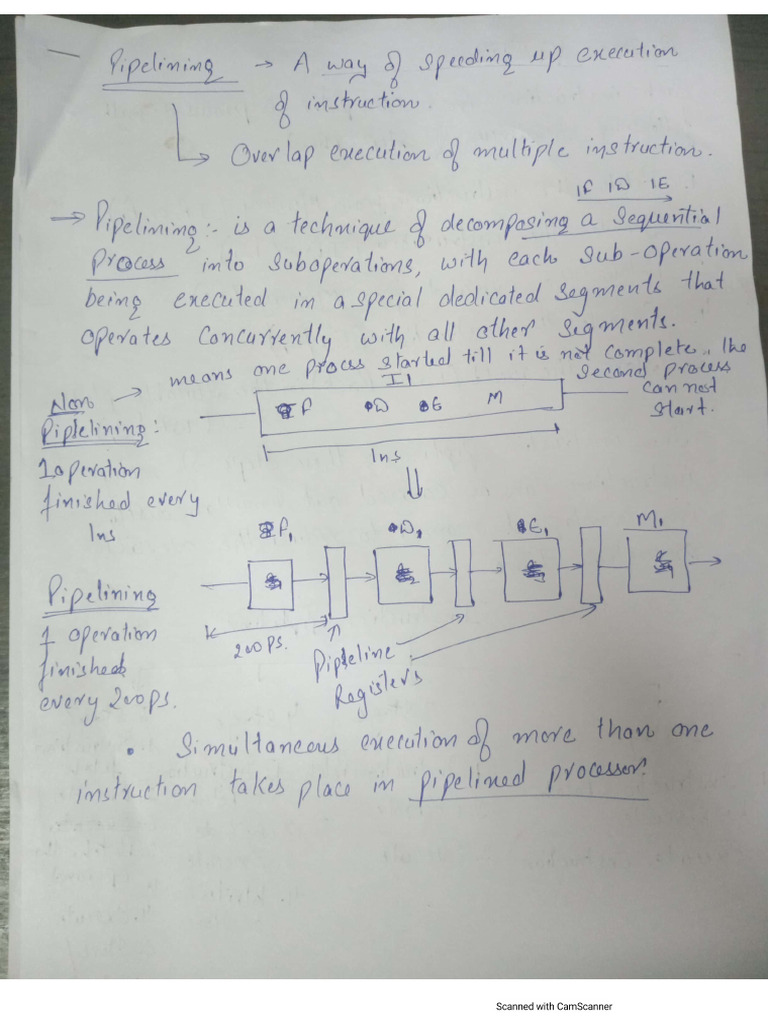 Pipelining → A way of speeding up execution
of instruction.
↳ Overlap execution of multiple instruction.
IF ID IE
→ Pipelining:- is a technique of decomposing a sequential
process into suboperations, with each sub-operation
being executed in a special dedicated segments that
operates concurrently with all other segments.
Non → means one process started till it is not complete, the
second process
cannot
start.
I1
Piplelining:
IF ID IE M
1 operation
finished every
1ns
1ns
IF1 ID1 IE1 M1
S1 S2 S3 S4
Pipelining
1 operation
finished
every 200ps.
200 ps.
Pipleline
Registers
• Simultaneous execution of more than one
instruction takes place in pipelined processor.
Scanned with CamScanner